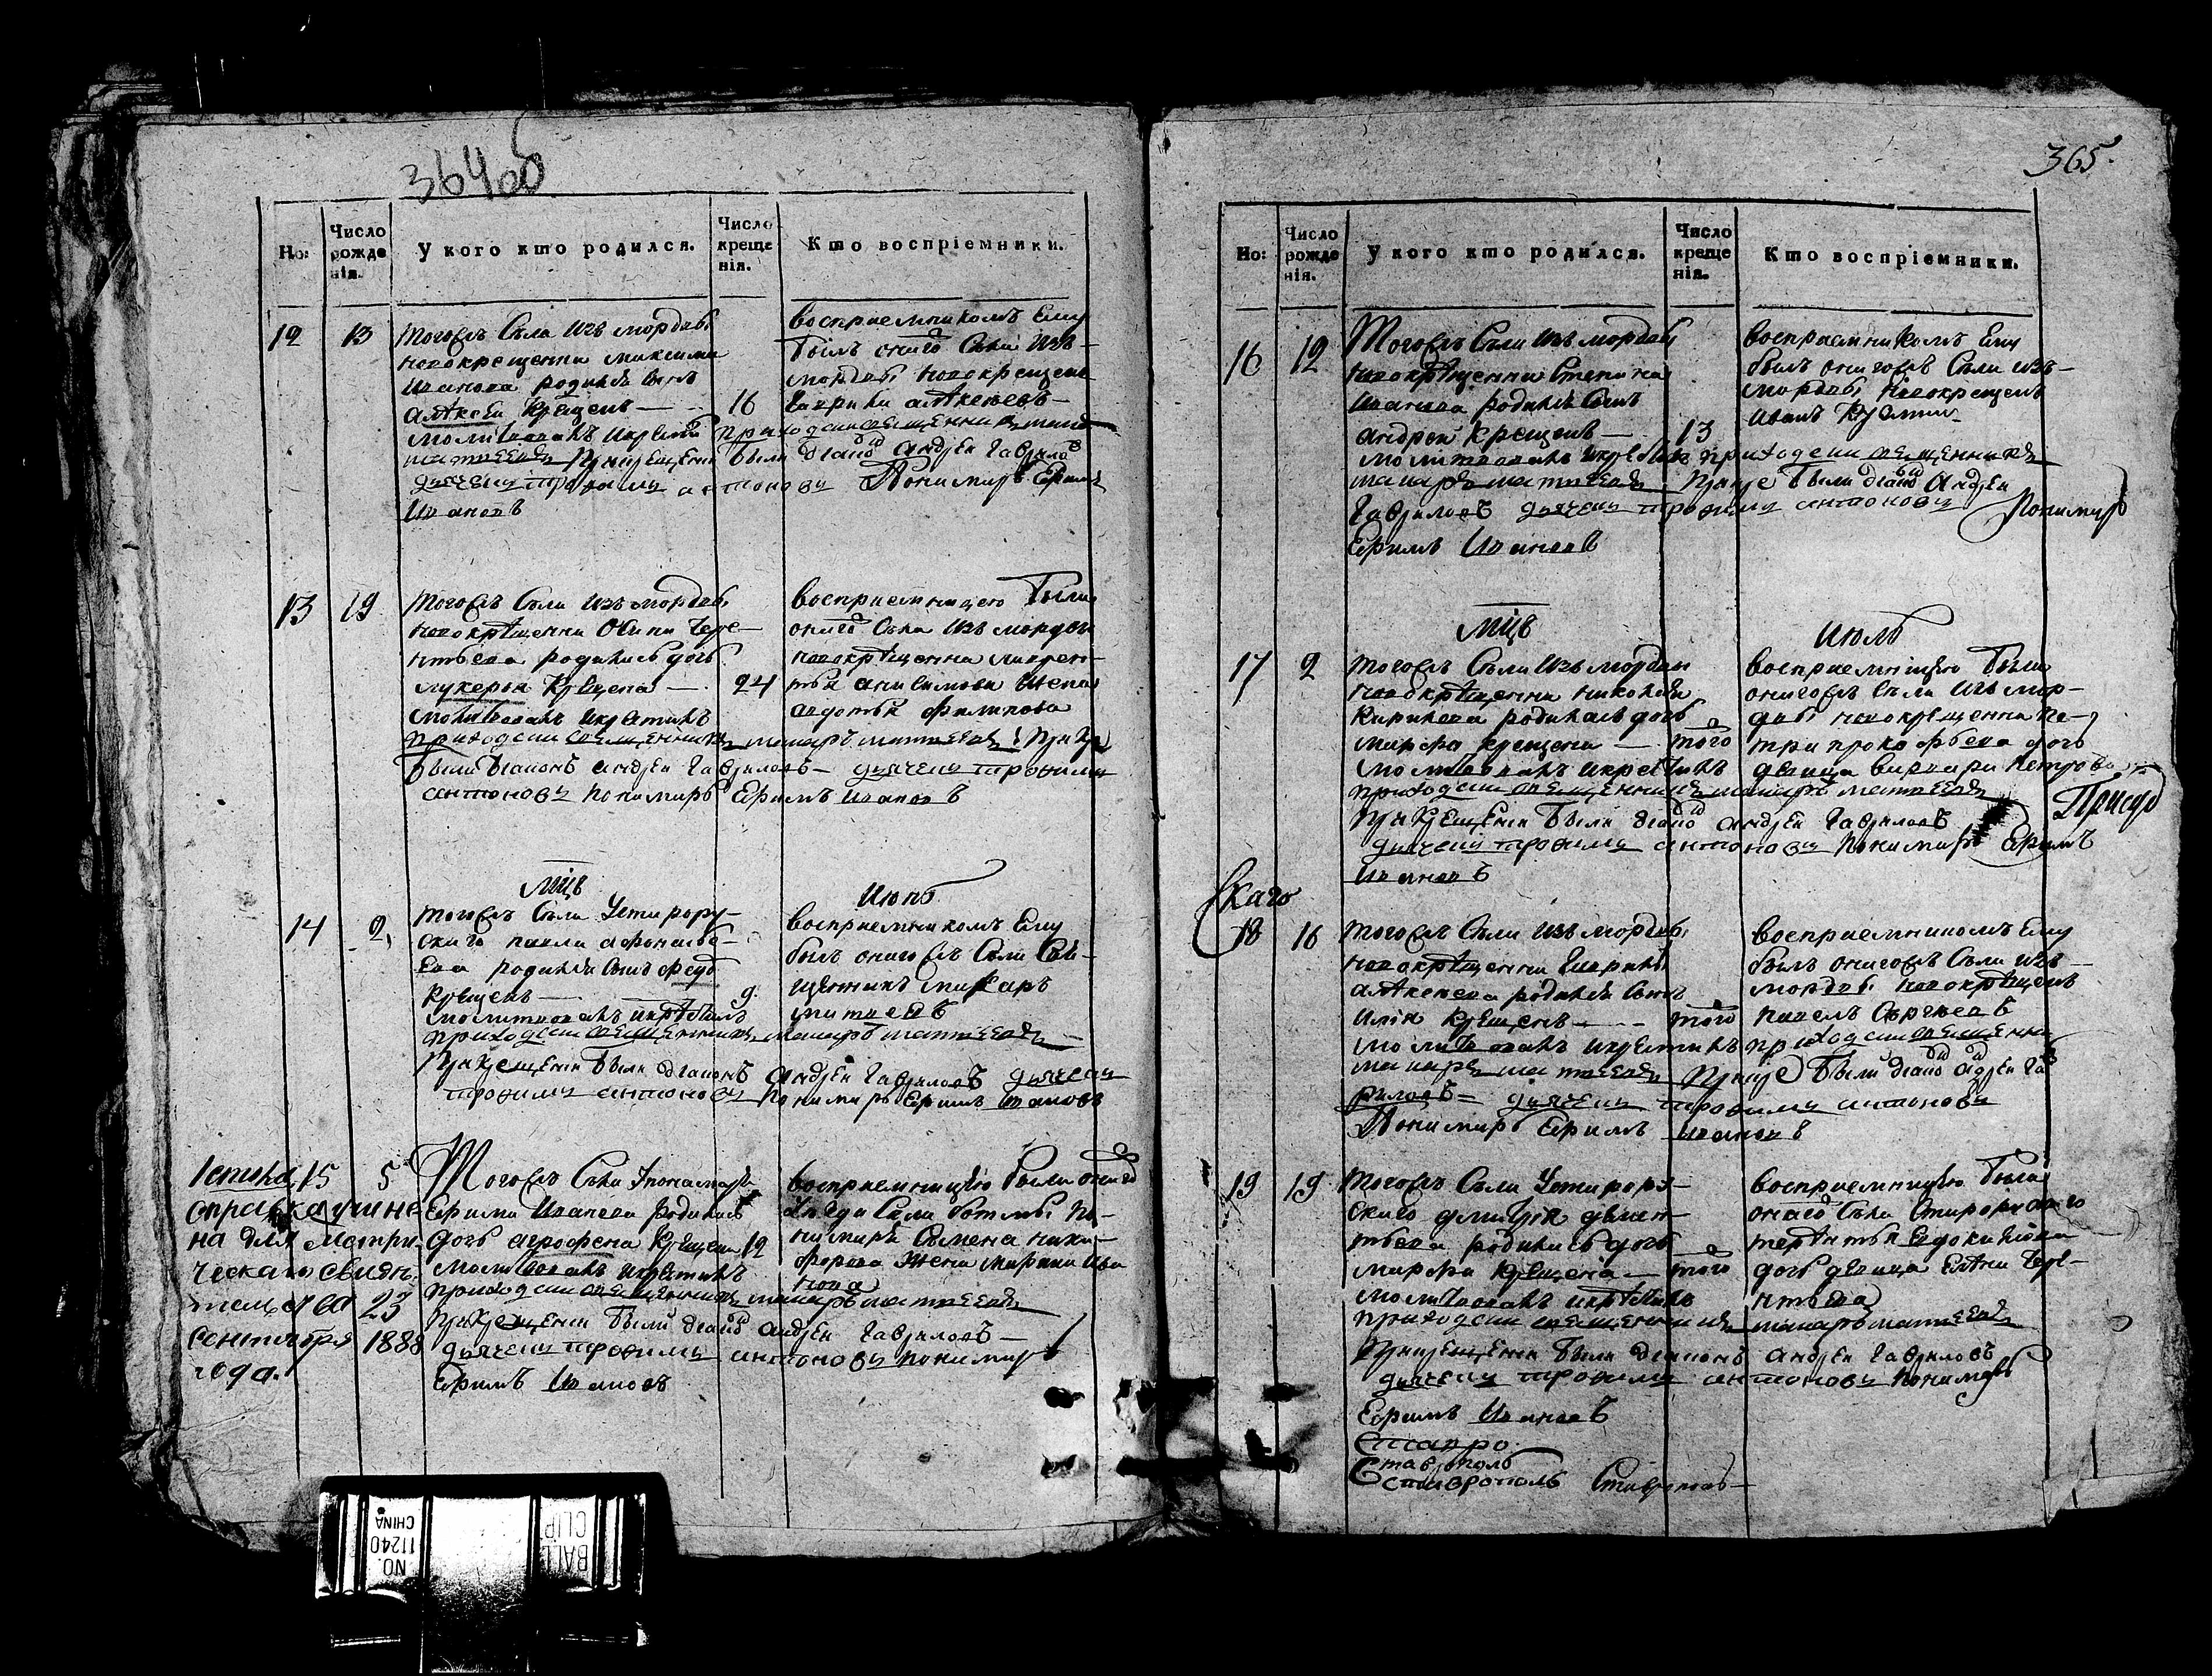 364об
Но:
Число рожденія.
У кого кто родился.
Число крещенія.
Кто воспріемники.
12
13
тогожъ Села изъ мордвы
новокрещенна максима
Иванова родился сынъ
алѣксей крещенъ —
молитвовалъ и крестилъ приходски священникъ макаръ
матвеевъ при крещени были диаконъ андрей гаврилов
дьячекъ трофимъ антоновъ Пономарь Ефимъ
Ивановъ
16
восприемникомъ ему
былъ онаго Села изъ
мордвы новокрещенъ
гаврила алѣксеевъ
13
19
тогожъ Села изъ мордвы
новокрѣщенна Осипа тере-
нтьева родилась дочь
лукерья Крещена —
молитвовалъ и крестилъ
приходски священникъ макаръ матвеевъ при кр
были диаконъ андрей гавриловъ — дьячекъ трофимъ
антоновъ пономарь Ефимъ Ивановъ
24
восприемницею была
онаго Села изъ мордвы
новокрѣщенна лаврен-
тья анисимова жена
авдотья филипова
мцъ
Июнь
14
2,
тогожъ Села
скаго павла афонасье-
ева родился сынъ федо
Крещенъ —
молитвовалъ и крѣстилъ
приходски священникъ макаръ матвеевъ
при крещени были диаконъ андрей гавриловъ дьячекъ
трофимъ антоновъ пономарь Ефимъ Ивановъ
9
восприемникомъ ему
былъ оногожъ Села Свя-
щенникъ макаръ
матвеевъ
15
5
Тогожъ Села Упонамаря
Ефима Иванова родилась
дочь агрофена крещена 12
молитвовалъ и крестилъ
приходски священникъ макаръ матвеевъ
при крещени были диаконъ андрей гавриловъ —
дьячекъ трофимъ антоновъ пономарь
Ефимъ Ивановъ
восприемницею была онаго
уезда Села ботьмы по-
номаря Семена ники-
форова жена марина ива
нова
справка учине
на для метри-
ческаго свидѣ-
тельства 23
сентября 1888
года.
365.
Но:
Число рожденія.
У кого кто родился.
Число крещенія.
Кто воспріемники.
16
12
Тогожъ Села изъ мордвы
новокрѣщенна Степана
Иванова родился сынъ
андрей крещенъ —
молитвовалъ и крестилъ приходски священникъ
макаръ матвеевъ при кре были диаконъ андрей
гавриловъ дьячекъ трофимъ антоновъ Пономарь
Ефимъ Ивановъ
13
восприемникомъ ему
былъ оногожъ Села изъ
мордвы новокрещенъ
иванъ кузмин
мцъ
Июль
17
2
тогожъ Села изъ мордвы
новокрѣщенна николая
Кирилова родилась дочь
марфа крещена — того
молитвовалъ и крестилъ
приходски священникъ макаръ матвеевъ
при крещени были диаконъ андрей гавриловъ
дьячекъ трофимъ антоновъ пономарь Ефимъ
Ивановъ
восприемницею была
оногожъ Села изъ мор-
двы новокрещенна пе-
тра прокофьева дочь
девица варвара петрова
скаго
18
16
тогожъ Села изъ мордвы
новокрѣщенна гаврилы
алѣксеева родился сынъ
илія крещенъ — того
молитвовалъ и крестилъ приходски священни
макаръ матвеевъ при кре были диаконъ адрей гав
риловъ — дьячекъ трофимъ антоновъ
Пономарь Ефимъ Ивановъ
восприемникомъ ему
былъ оногожъ Села изъ
мордвы новокрѣщенъ
павелъ Сергеевъ
19
19
тогожъ Села
скаго дмитрія демен-
тьева родилась дочь
марфа крещена — того
молитвовалъ и крѣстилъ
приходски священникъ макаръ матвеевъ
при крещени были диаконъ андрей гавриловъ
дьячекъ трофимъ антоновъ пономарь
Ефимъ Ивановъ
восприемницею была
онаго Села
терентья Евдокимова
дочь девица елѣна тере-
нтьева
Ставрополь
ставрополь
NO. 11240 CHINA
BALL CLIP